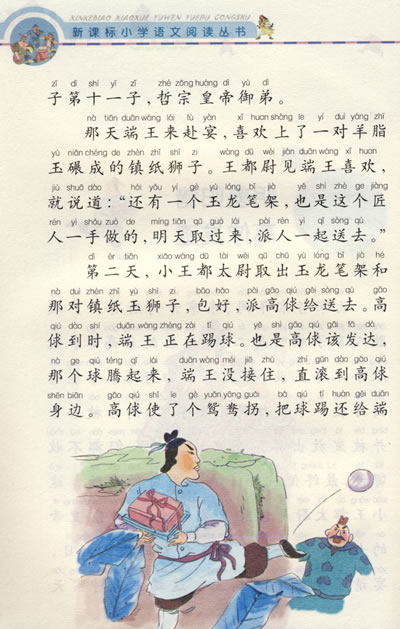 XINKEBIAO XIAOXUE YUWEN YUEDU CONGSHU
新课标小学语文阅读丛书
zǐ dì shí yī zǐ zhé zōng huáng dì yù dì
子第十一子，哲宗皇帝御弟。
nà tiān duān wáng lái fù yàn xǐ huān shàng le yí duì yáng zhī
那天端王来赴宴，喜欢上了一对羊脂
yù niǎn chéng de zhèn zhǐ shī zi wáng dū wèi jiàn duān wáng xǐ huān
玉碾成的镇纸狮子。王都尉见端王喜欢，
jiù shuō dào hái yǒu yí gè yù lóng bǐ jià yě shì zhè ge jiàng
就说道：“还有一个玉龙笔架，也是这个匠
rén yì shǒu zuò de míng tiān qǔ guò lái pài rén yì qǐ sòng qù
人一手做的，明天取过来，派人一起送去。”
dì èr tiān xiǎo wáng dū tài wèi qǔ chū yù lóng bǐ jià hé
第二天，小王都太尉取出玉龙笔架和
nà duì zhèn zhǐ yù shī zi bāo hǎo pài gāo qiú gěi sòng qù gāo
那对镇纸玉狮子，包好，派高俅给送去。高
qiú dào shí duān wáng zhèng zài tī qiú yě shì gāo qiú gāi fā dá
俅到时，端王正在踢球。也是高俅该发达，
nà ge qiú téng qǐ lái duān wáng méi jiē zhù zhí gǔn dào gāo qiú
那个球腾起来，端王没接住，直滚到高俅
shēn biān gāo qiú shǐ le gè yuān yāng guǎi bǎ qiú tī huán gěi duān
身边。高俅使了个鸳鸯拐，把球踢还给端